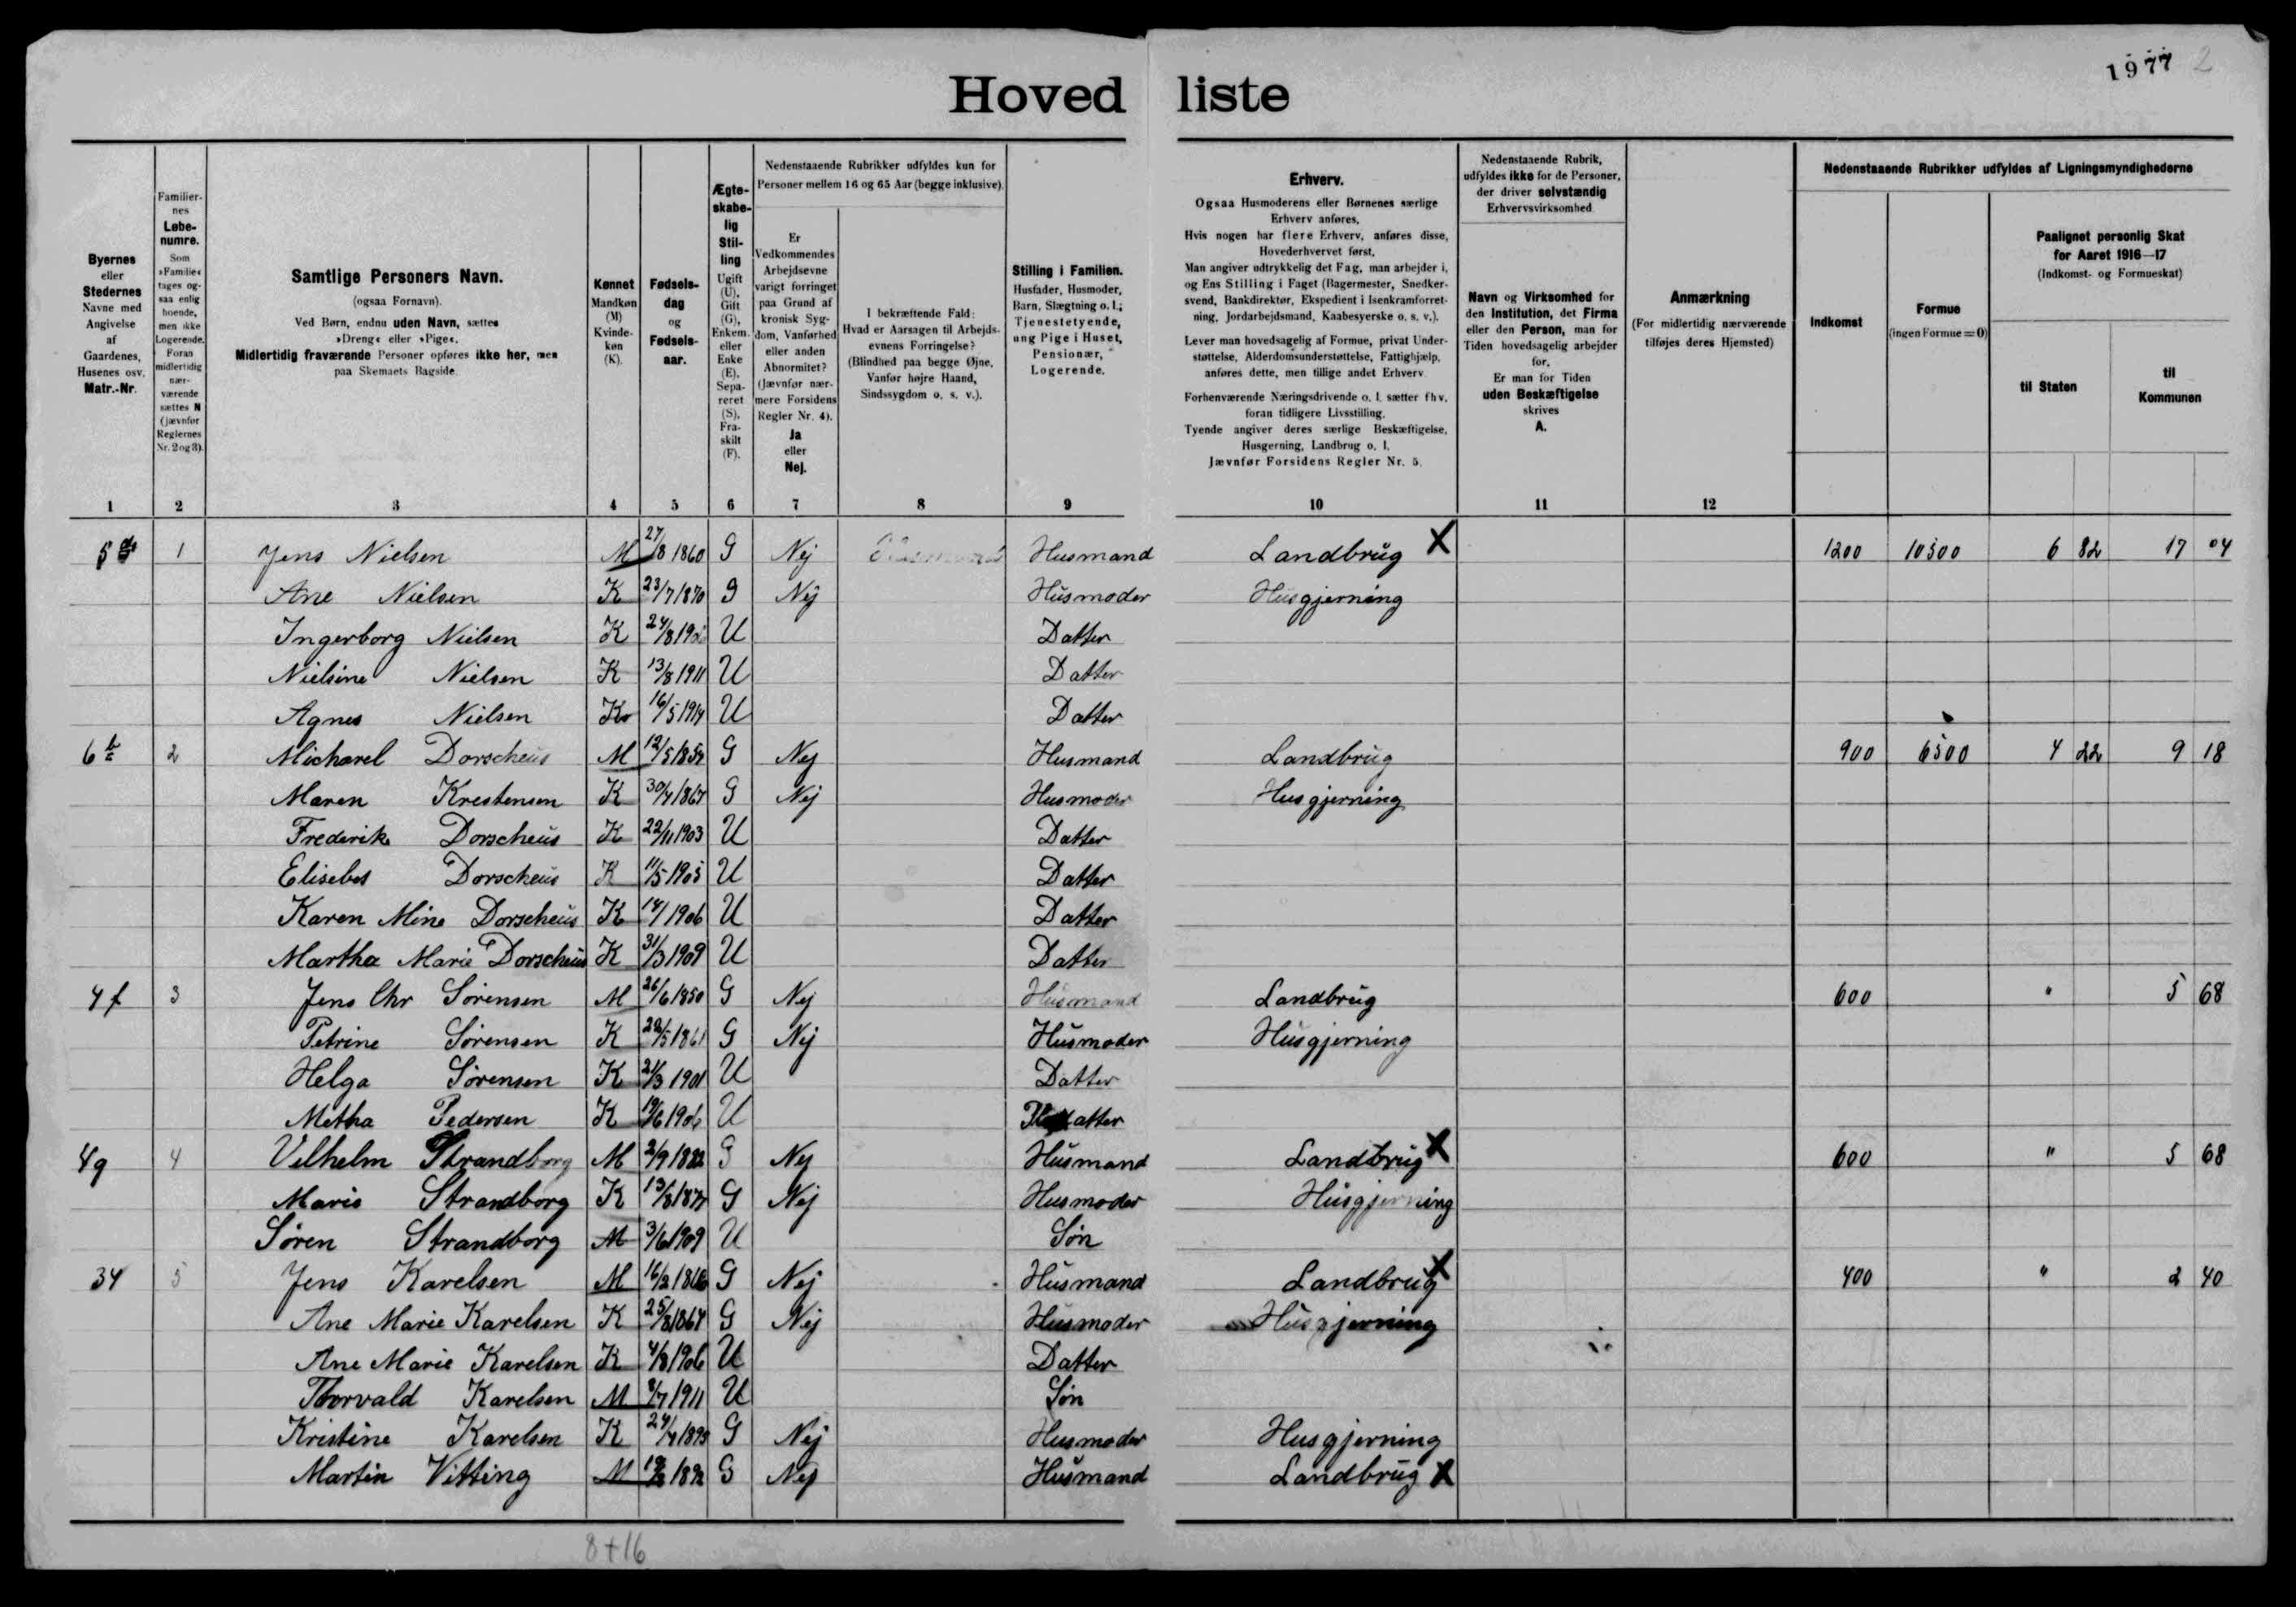 1977 2
Hoved liste
Byernes eller Stedernes Navne med Angivelse af Gaardenes, Husenes osv. Matr.-Nr.
Familiernes Løbenumre. Som »Familie« tages ogsaa enlig boende, men ikke Logerende. Foran midlertidig nærværende sættes N (jævnfør Reglernes Nr. 2 og 3).
Samtlige Personers Navn. (ogsaa Fornavn). Ved Børn, endnu uden Navn, sættes »Dreng« eller »Pige«. Midlertidig fraværende Personer opføres ikke her, men paa Skemaets Bagside.
Kønnet Mandkøn (M) Kvindekøn (K).
Fødselsdag og Fødselsaar.
Ægteskabelig Stilling Ugift (U), Gift (G), Enkem. eller Enke (E), Separeret (S), Fraskilt (F).
Nedenstaaende Rubrikker udfyldes kun for Personer mellem 16 og 65 Aar (begge inklusive).
Er Vedkommendes Arbejdsevne varigt forringet paa Grund af kronisk Sygdom, Vanførhed eller anden Abnormitet? (Jævnfør nærmere Forsidens Regler Nr. 4). Ja eller Nej.
I bekræftende Fald: Hvad er Aarsagen til Arbejdsevnens Forringelse? (Blindhed paa begge Øjne, Vanfør højre Haand, Sindssygdom o. s. v.).
Stilling i Familien. Husfader, Husmoder, Barn, Slægtning o. l.; Tjenestetyende, ung Pige i Huset, Pensionær, Logerende.
Erhverv.
Ogsaa Husmoderens eller Børnenes særlige Erhverv anføres.
Hvis nogen har flere Erhverv, anføres disse, Hovederhvervet først.
Man angiver udtrykkelig det Fag, man arbejder i, og Ens Stilling i Faget (Bagermester, Snedkersvend, Bankdirektør, Ekspedient i Isenkramforretning, Jordarbejdsmand, Kaabesyerske o. s. v.).
Lever man hovedsagelig af Formue, privat Understøttelse, Alderdomsunderstøttelse, Fattighjælp, anføres dette, men tillige andet Erhverv
Forhenværende Næringsdrivende o. l. sætter fhv. foran tidligere Livsstilling.
Tyende angiver deres særlige Beskæftigelse, Husgerning, Landbrug o. l.
Jævnfør Forsidens Regler Nr. 5.
Nedenstaaende Rubrik, udfyldes ikke for de Personer, der driver selvstændig Erhvervsvirksomhed
Navn og Virksomhed for den Institution, det Firma eller den Person, man for Tiden hovedsagelig arbejder for.
Er man for Tiden uden Beskæftigelse skrives A.
Anmærkning (For midlertidig nærværende tilføjes deres Hjemsted)
Nedenstaaende Rubrikker udfyldes af Ligningsmyndighederne
Indkomst
Formue (ingen Formue = 0)
Paalignet personlig Skat for Aaret 1916—17 (Indkomst- og Formueskat)
til Staten
til Kommunen
1 2 3 4 5 6 7 8 9 10 11 12
1 Jens Nielsen M 27/8 1860 G Nej Husmand Landbrug X 1200 10500 6 82 17 04
Ane Nielsen K 23/7 1870 G Nej Husmoder Husgjerning
Ingerborg Nielsen K U Datter
Nielsine Nielsen K 13/8 1911 U Datter
Agnes Nielsen K 16/5 1914 U Datter
6 2 Micharel Dorscheus M G Nej Husmand Landbrug 900 6500 4 22 9 18
Maren Krestensen K G Nej Husmoder Husgjerning
Frederike Dorscheus K 22/11 1903 U Datter
Elisebet Dorscheus K 11/5 1905 U Datter
Karen Mine Dorscheus K U Datter
Martha Marie Dorscheus K 31/3 1909 U Datter
4 f 3 Jens Chr Sørensen M 26/6 1850 G Nej Husmand Landbrug 600 " 5 68
Petrine Sørensen K 22/5 1861 G Nej Husmoder Husgjerning
Helga Sørensen K 21/3 1901 U Datter
Metha Pedersen K 19/6 1906 U
4g 4 Vilhelm Strandborg M G Nej Husmand Landbrug X 600 " 5 68
Marie Strandborg K G Nej Husmoder Husgjerning
Søren Strandborg M 3/6 1909 U Søn
34 5 Jens Karelsen M G Nej Husmand Landbrug X 400 " 2 40
Ane Marie Karelsen K 25/8 1864 G Nej Husmoder Husgjerning
Ane Marie Karelsen K 4/8 1906 U Datter
Thorvald Karelsen M U Søn
Kristine Karelsen K G Nej Husmoder Husgjerning
Martin Vitting M G Nej Husmand Landbrug X
8+16